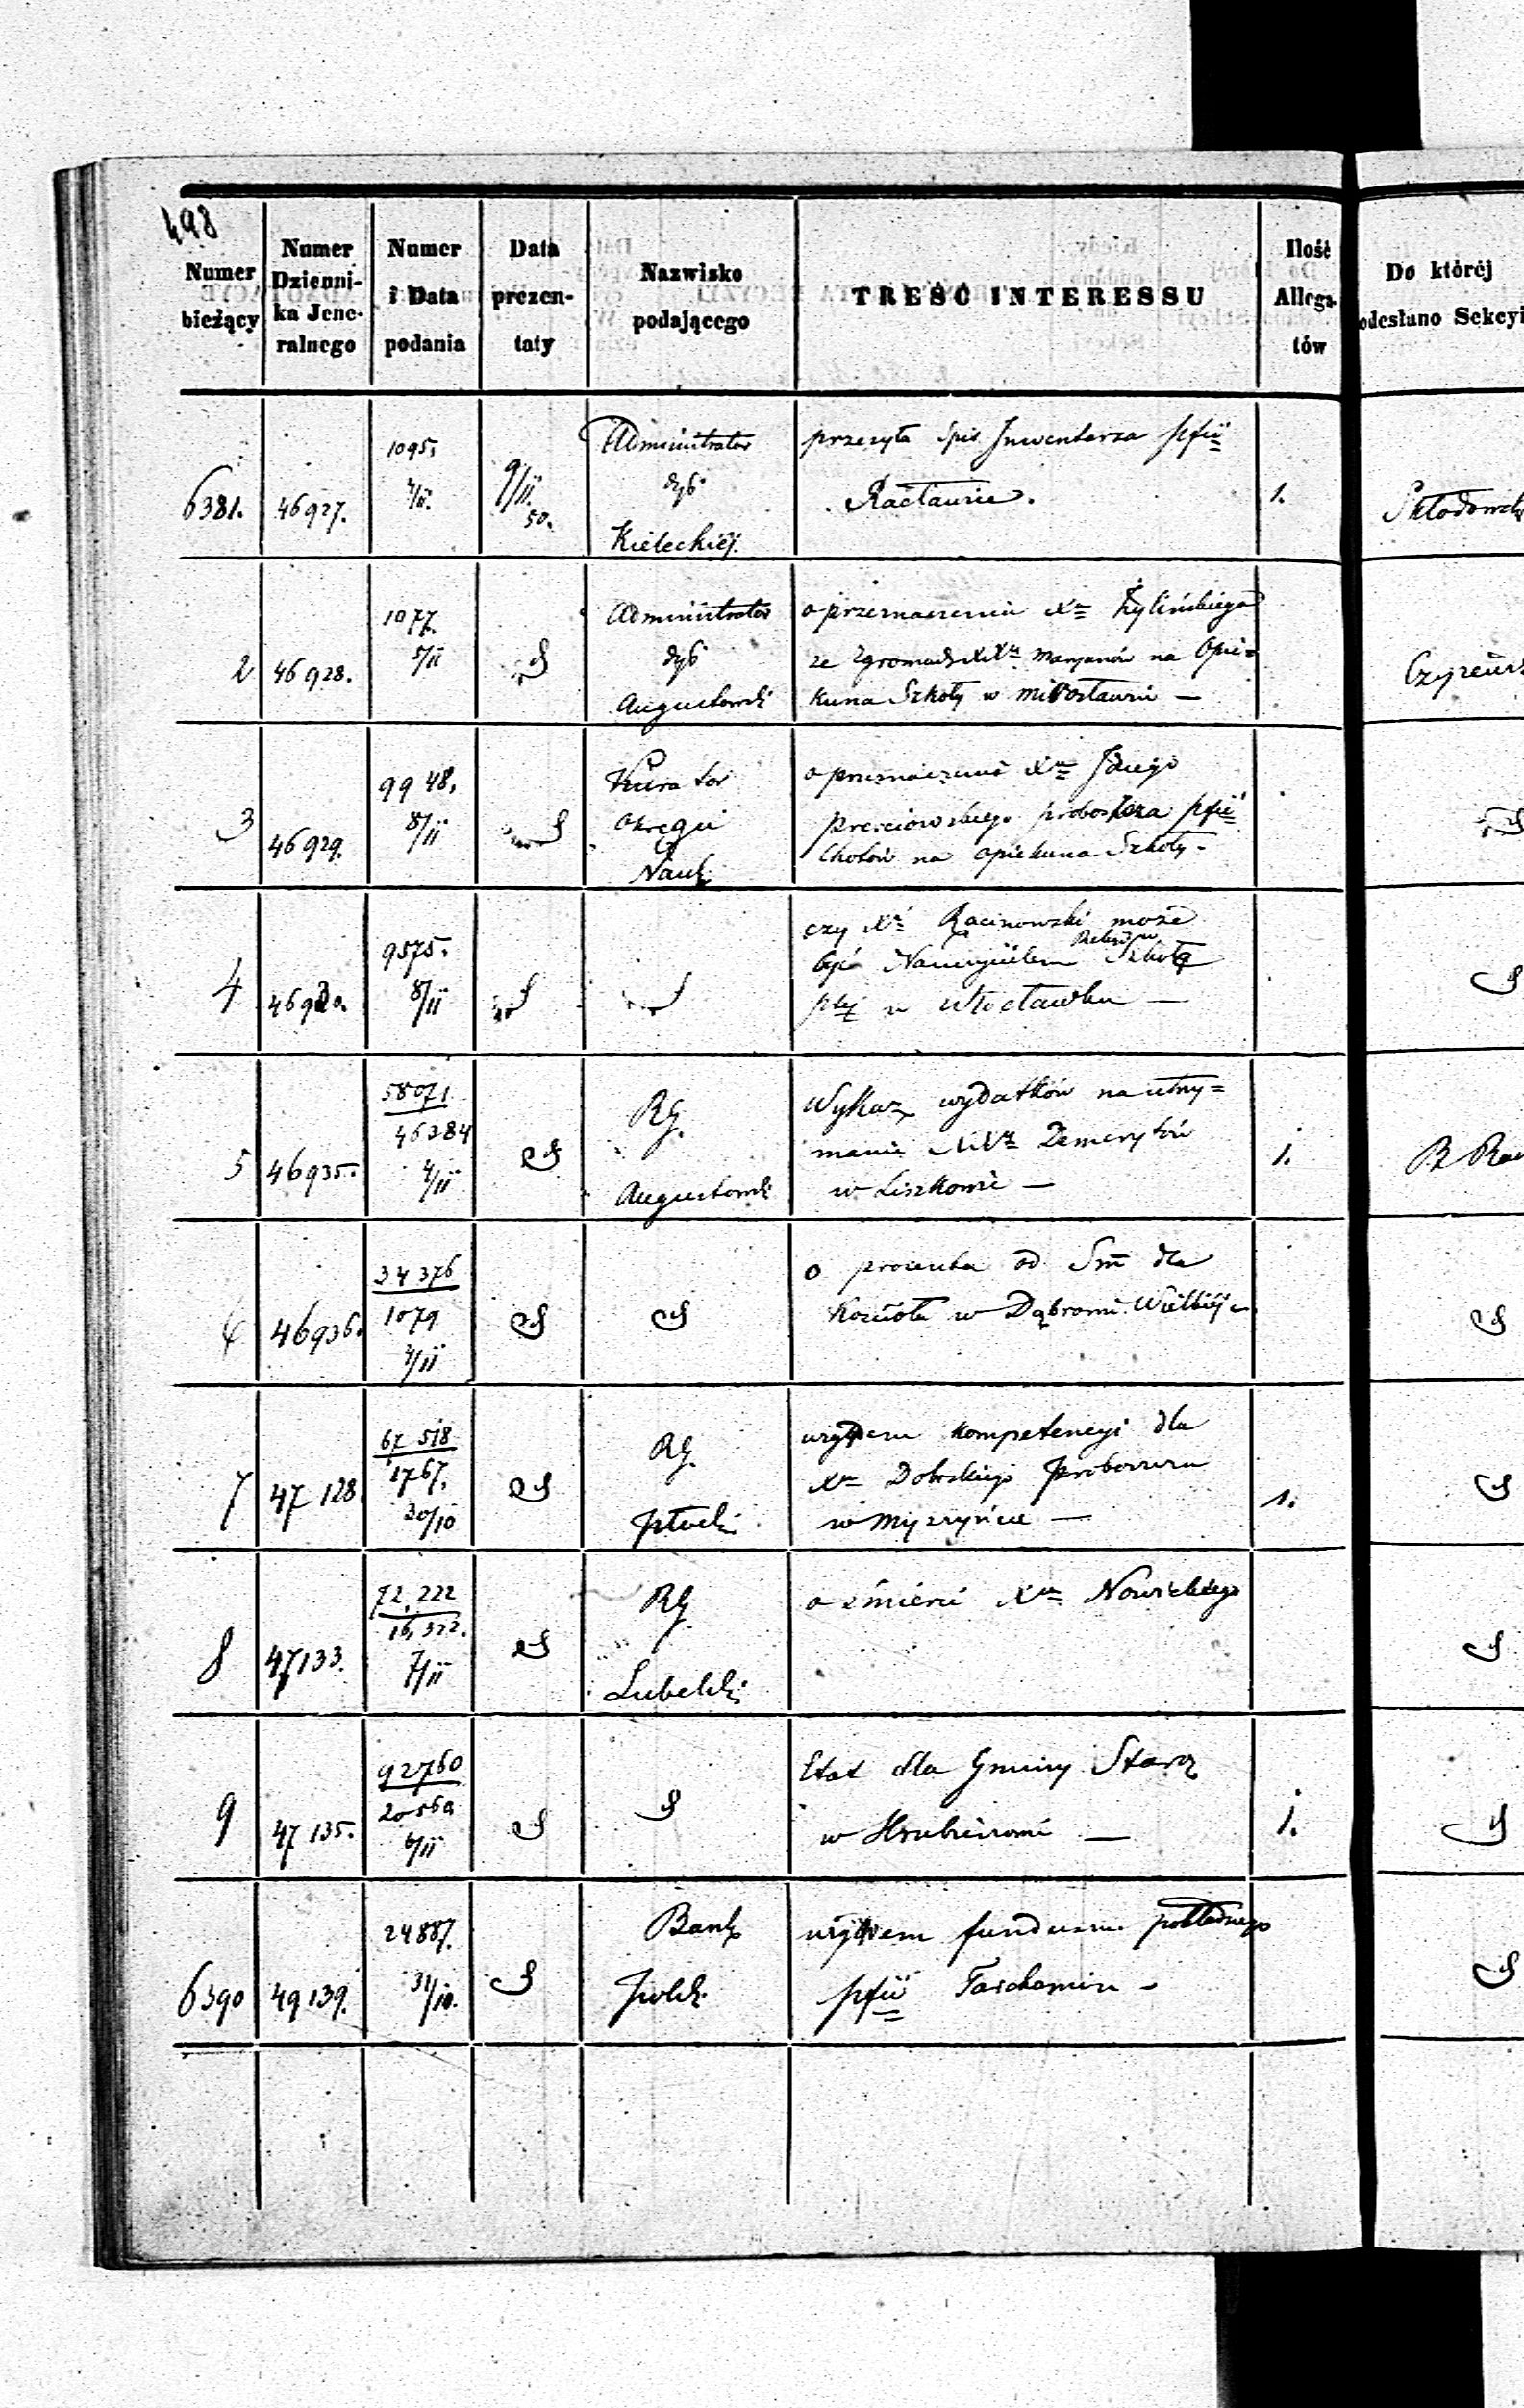 498
Numer bieżący
Numer Dzienni- ka Jene- ralnego
Numer i Data podania
Data prezen- taty
Nazwisko podającego
TREŚĆ INTERESSU
Ilość Allega- tów
Do której odesłano Sekcyi
6381. 46927. 1095. 9/11. 50. Administrator dyec Kieleckiéj.
przesyła Spis Inwentarza pfii
Racławice. 1.
2 46928. 1077. 5/11 Administrator Augustowski
o przeznaczeniu Xa Żylińskiego
ze Zgromadz. XXy Marjanów na Opie=
kuna Szkoły w Mirosławiu —
3 46929. 9948. 8/11 Kurator Okręgu Nauk.
o przeznaczenie Xa
proboszcza pfii
na opiekuna Szkoły.
4 46930. 9575. 8/11
czy X Racinowski może
być Nauczycielem Szkoły
w Włocławku —
5 46935. 58071 46384 4/11 RG. Augustowski
Wykaz wydatków na utrzy=
manie XXy Demerytów
w Liszkowie — 1.
6 46936. 34376 1079 4/11
o procenta od Sm dla
Kościoła w Dąbrowie Wielkiéj
7 47128. 67518 1767. 30/10 RG. Płocki
względem kompetencyi dla
Xa Dobrskiego Proboszcza
w Myszyńcu — 1.
8 47133. 72.222 16,322. 7/11 RG. Lubelski
o śmierci Xa Nowickiego
9 47135. 92760 6/11
Etat dla Gminy Starz
w Hrubieszowie — 1.
6390 49139. 24887. 31/10. Bank Polski
względem funduszu pokładnego
pfii Tarchomin -